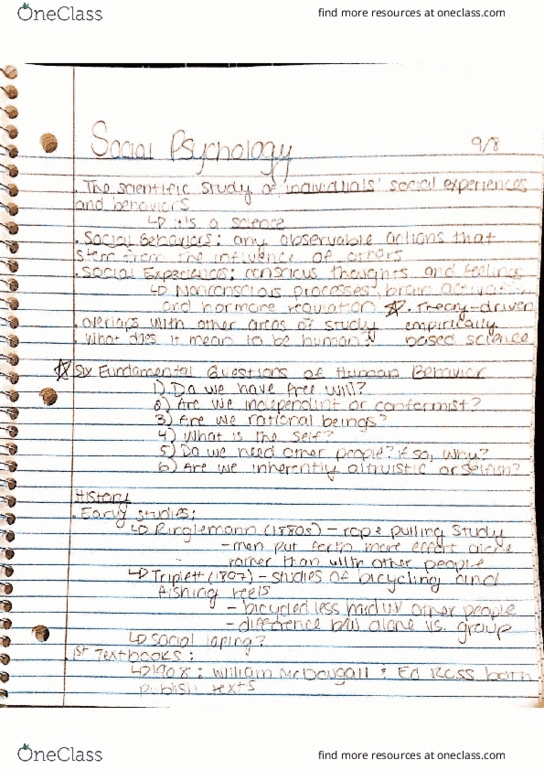 OneClass
find more resources at oneclass.com
Social Psychology 9/8
. The scientific study of individuals' social experiences
and behaviors
↳ it's a science
. Social Behaviors: any observable actions that
stem from the influence of others
. Social Experiences: conscious thoughts and feelings
↳ Nonconscious processes: brain activation
and hormone regulation ☆ . Theory-driven
. overlaps with other areas of study empirically
. What does it mean to be human? based science
☆ Six Fundamental Questions of Human Behavior
1) Do we have free will?
2) Are we independent or conformist?
3) Are we rational beings?
4) What is the self?
5) Do we need other people? if so, why?
6) Are we inherently altruistic or selfish?
History
. Early studies:
↳ Ringlemann (1880s) - rope pulling study
- men put forth more effort alone
rather than with other people
↳ Triplett - studies of bicycling and
fishing reels
- bicycled less hard w/ other people
- difference b/w alone vs. group
↳ social loping?
1st Textbooks:
↳ 1908: William McDougall & Ed Ross both
publish texts
OneClass
find more resources at oneclass.com